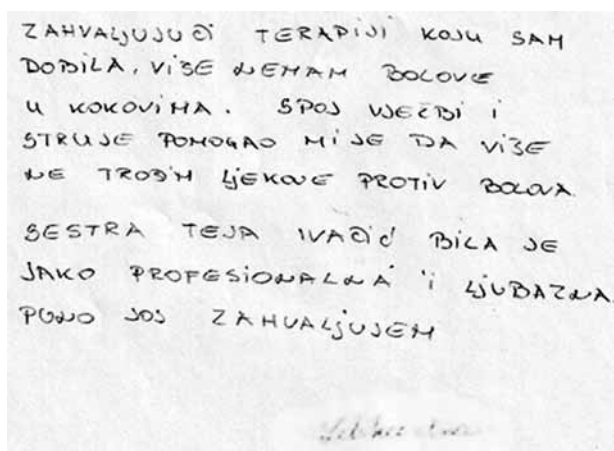 ZAHVALJUJUĆI TERAPIJI KOJU SAM
DOBILA, VIŠE NEMAM BOLOVE
U KOKOVIMA. SPOJ VJEŽBI I
STRUJE POMOGAO MI JE DA VIŠE
NE TROŠIM LJEKOVE PROTIV BOLOVA
SESTRA TEJA IVAČIĆ BILA JE
JAKO PROFESIONALNA I LJUBAZNA
PUNO JOŠ ZAHVALJUJEM